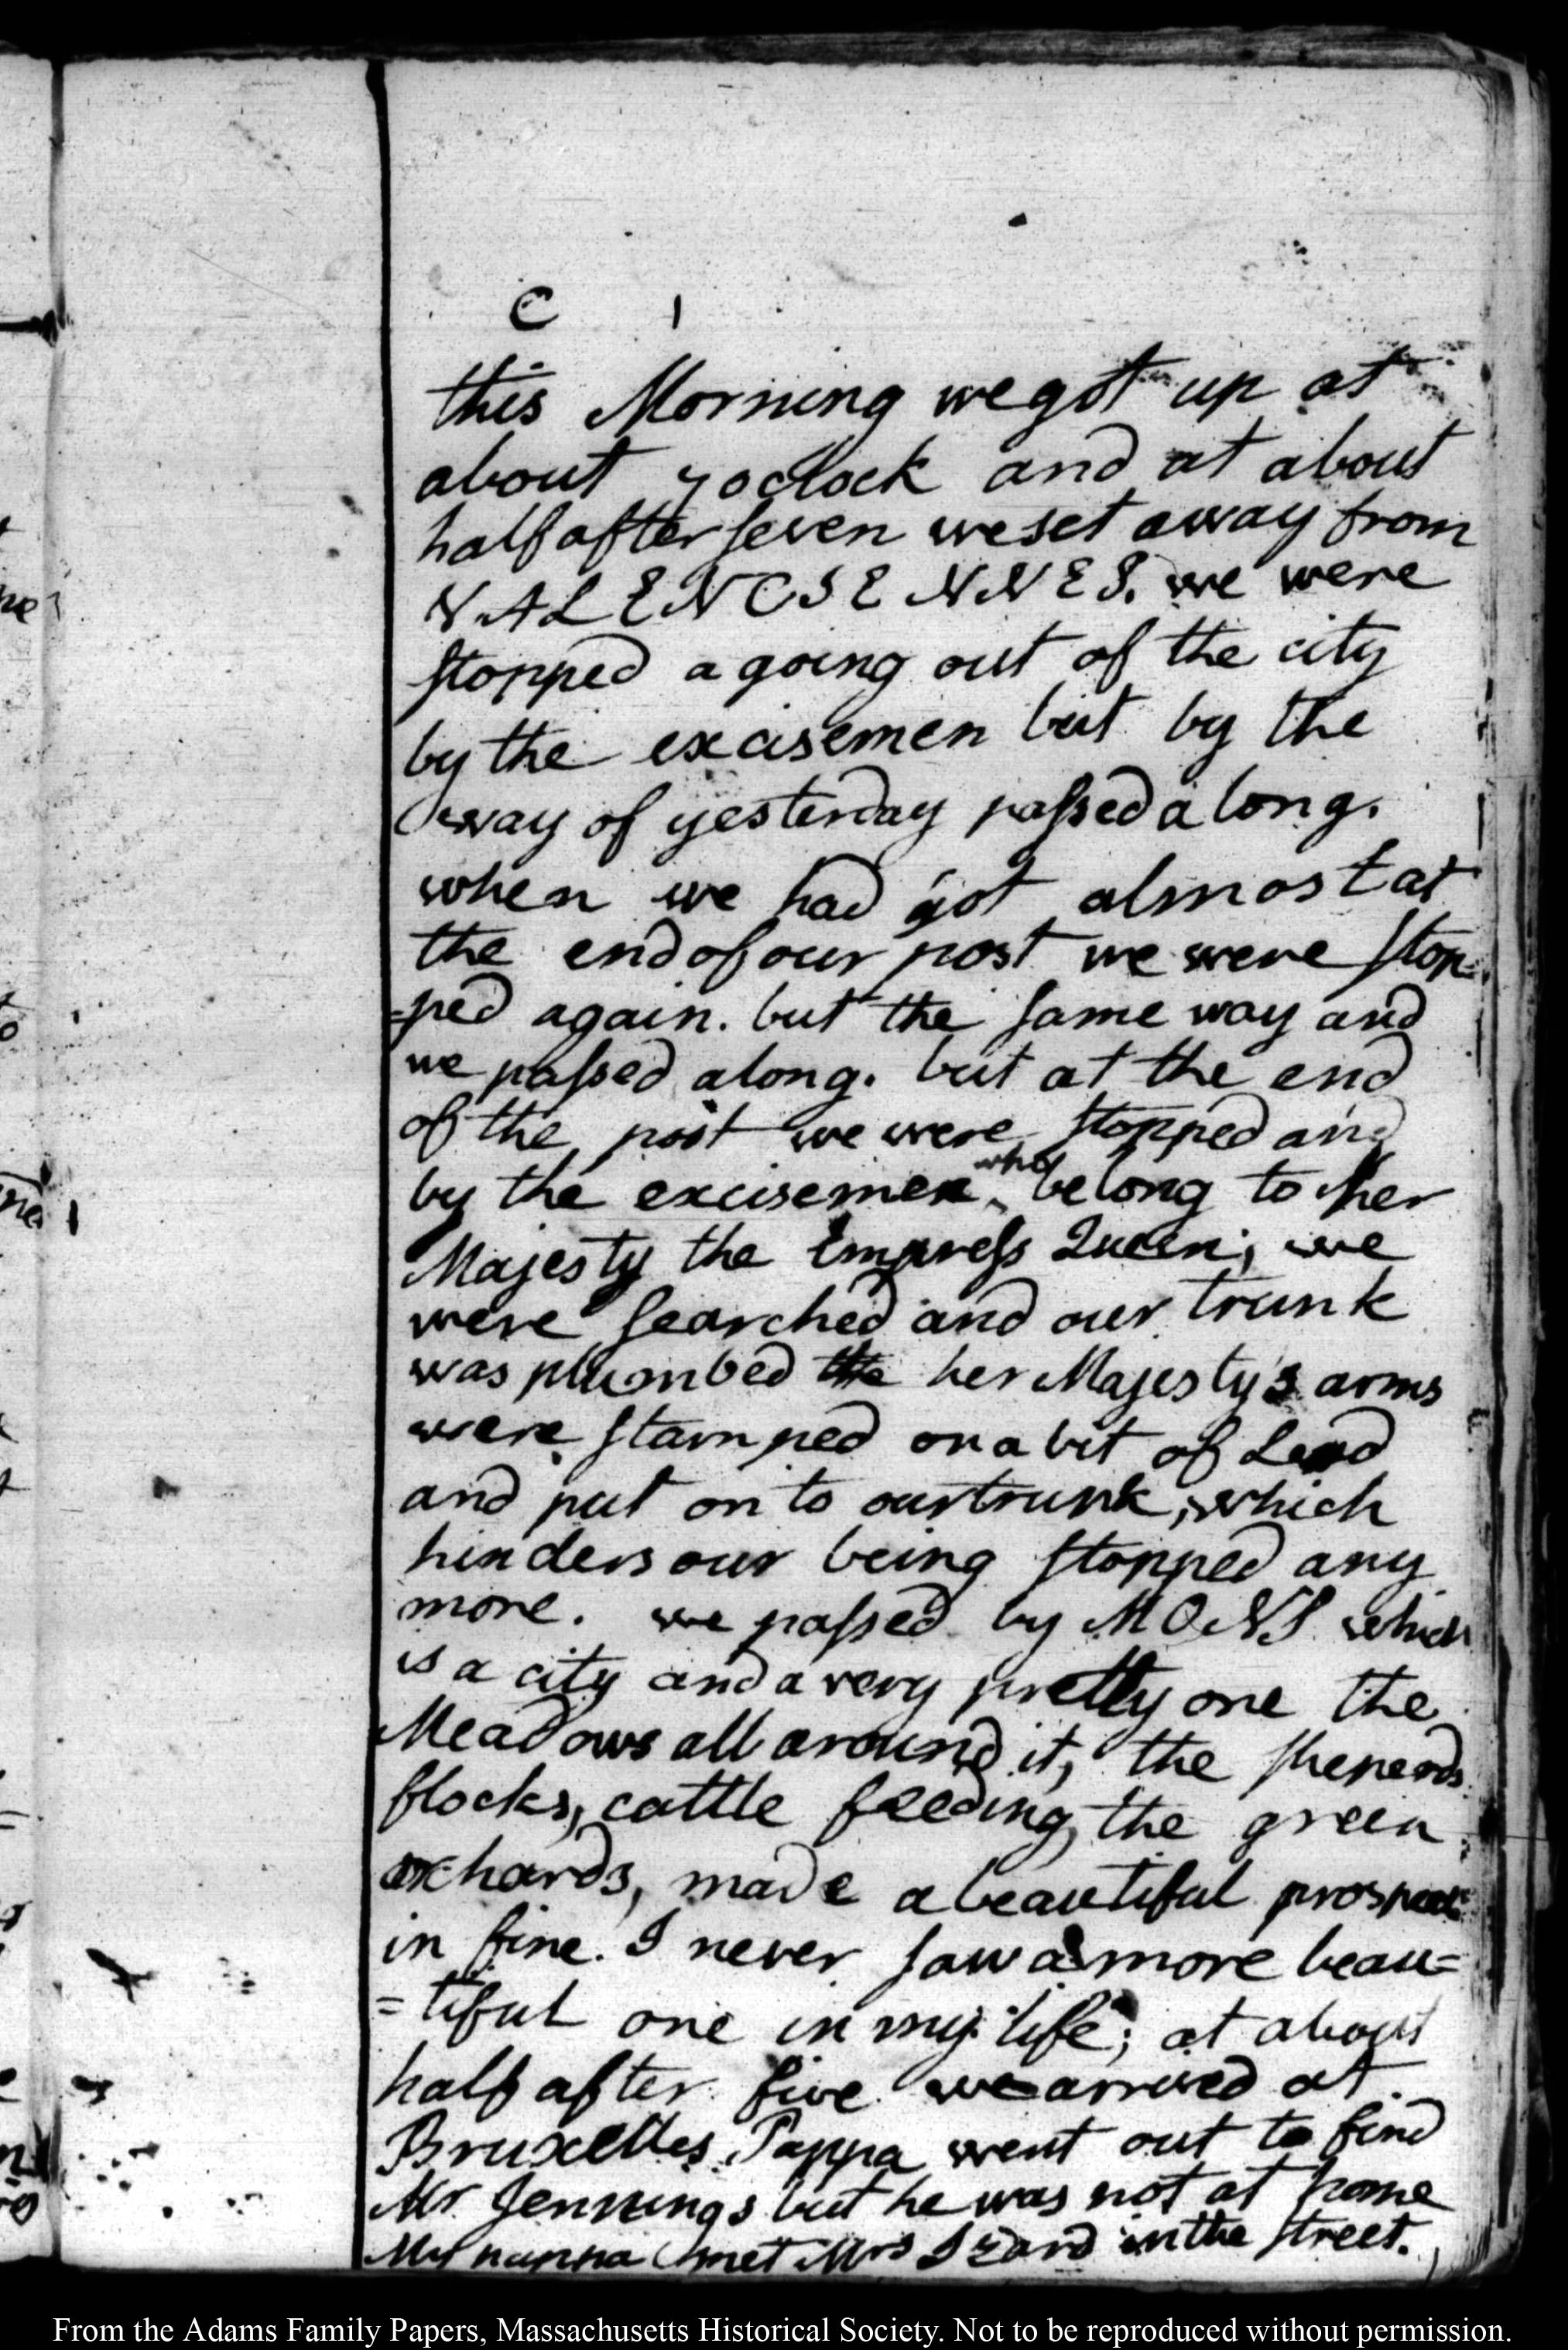 C 1
this Morning we got up at
about 7 oclock and at about
half after seven we set away from
VALENCIENNES. we were
stopped a going out of the city
by the excisemen but by the
way of yesterday passed along.
when we had got almost at
the end of our post we were stop=
=ped again. but the same way and
we passed along. but at the end
of the post we were stopped and
by the excisemen who belong to her
Majesty the Empress Queen; we
were searched and our trunk
was plumbed her Majesty's arms
were stamped on a bit of Lead
and put on to our trunk, which
hinders our being stopped any
more. we passed by MONS which
is a city and a very pretty one the
Meadows all around it, the sheperds
flocks, cattle feeding, the green
orchards, made a beautiful prospect
in fine. I never saw a more beau=
=tiful one in my life; at about
half after five we arrived at
Bruxelles. Pappa went out to find
Mr. Jennings but he was not at home
My pappa met Mrs Izard in the street.
From the Adams Family Papers, Massachusetts Historical Society. Not to be reproduced without permission.